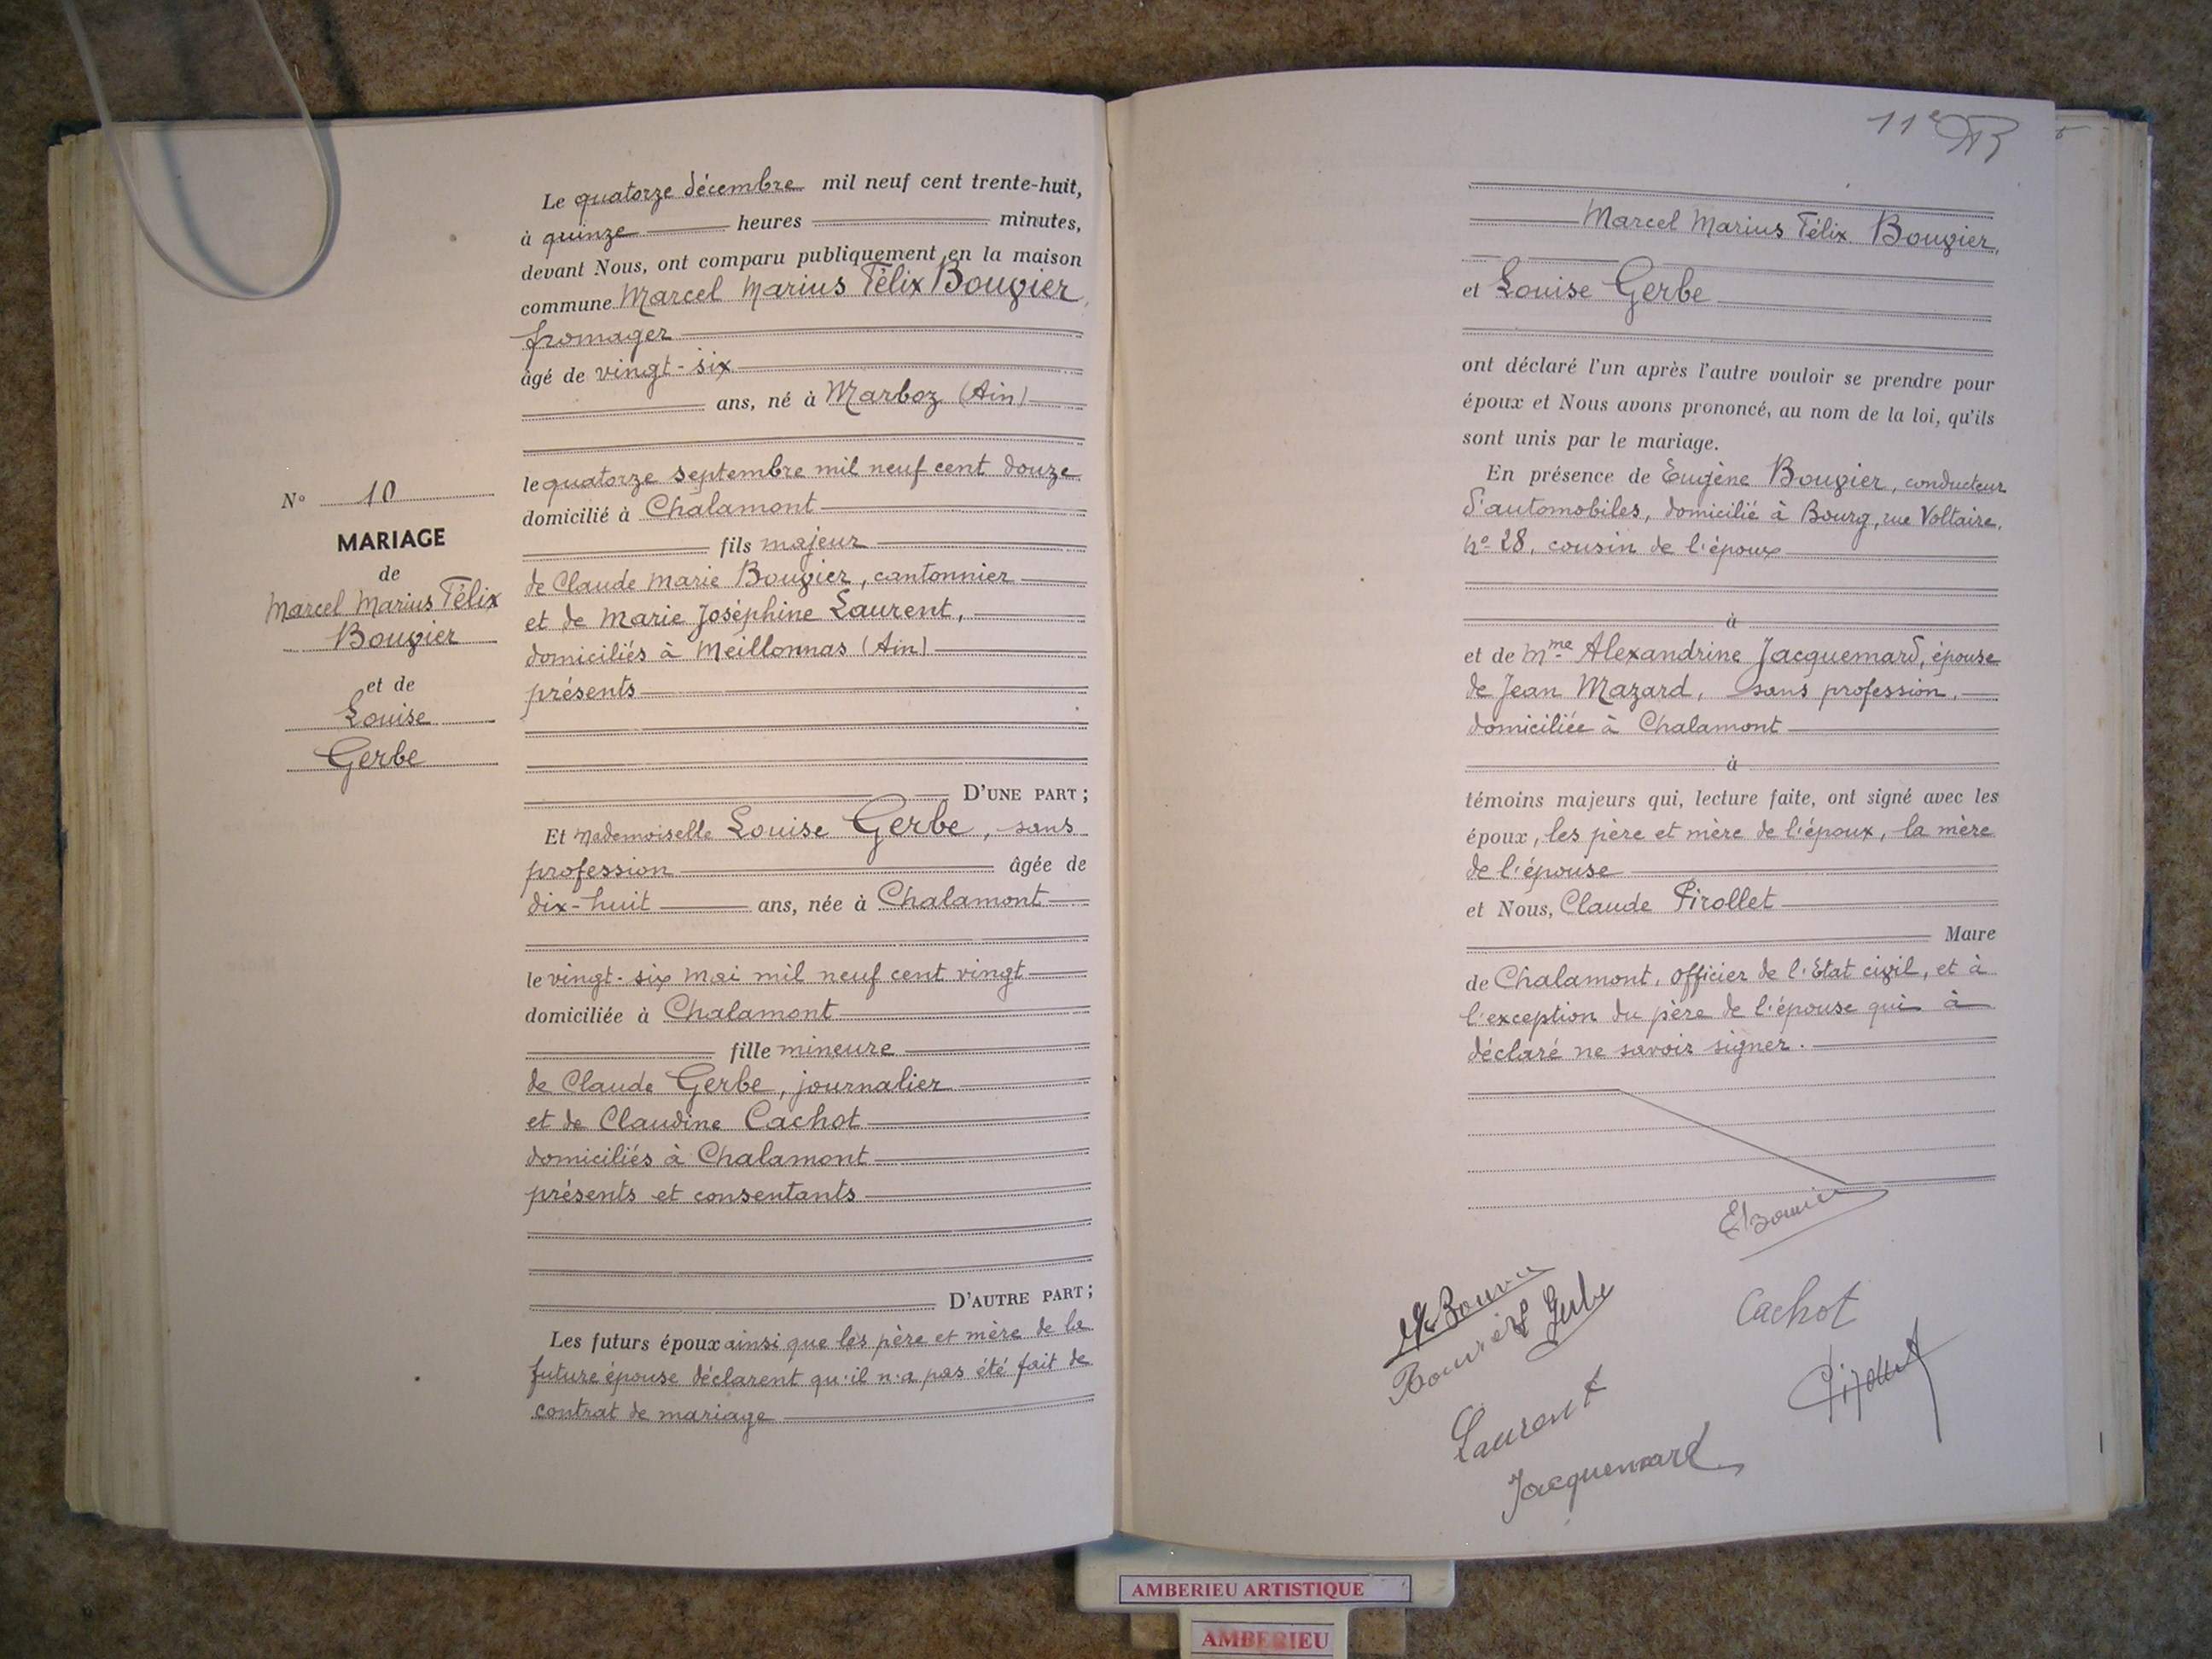 11e
Le quatorze décembre mil neuf cent trente-huit,
à quinze heures minutes,
devant Nous, ont comparu publiquement en la maison
commune Marcel Marius Félix Bouvier,
fromager
âgé de vingt-six
ans, né à Marboz (Ain)
le quatorze septembre mil neuf cent douze
domicilié à Chalamont
fils majeur
de Claude Marie Bouvier, cantonnier
et de Marie Joséphine Laurent,
domiciliés à Meillonnas (Ain)
présents
D'UNE PART ;
Et Mademoiselle Louise Gerbe, sans
profession âgée de
dix-huit ans, née à Chalamont
le vingt-six mai mil neuf cent vingt
domiciliée à Chalamont
fille mineure
de Claude Gerbe, journalier
et de Claudine Cachot
domiciliés à Chalamont
présents et consentants
D'AUTRE PART ;
Les futurs époux ainsi que les père et mère de la
future épouse déclarent qu'il n'a pas été fait de
contrat de mariage
N° 10
MARIAGE
de
Marcel Marius Félix
Bouvier
et de
Louise
Gerbe
Marcel Marius Félix Bouvier,
et Louise Gerbe
ont déclaré l'un après l'autre vouloir se prendre pour
époux et Nous avons prononcé, au nom de la loi, qu'ils
sont unis par le mariage.
En présence de Eugène Bouvier, conducteur
d'automobiles, domicilié à Bourg, rue Voltaire,
n° 28, cousin de l'époux
à
et de Mme Alexandrine Jacquemard, épouse
de Jean Mazard, sans profession,
domiciliée à Chalamont
à
témoins majeurs qui, lecture faite, ont signé avec les
époux, les père et mère de l'époux, la mère
de l'épouse
et Nous, Claude Pirollet
Maire
de Chalamont, Officier de l'Etat civil, et à
l'exception du père de l'épouse qui à
déclaré ne savoir signer.
EBouvier
Bouvier
L Gerbe
Bouvier
Cachot
Pirollet
Laurent
Jacquemard
AMBERIEU ARTISTIQUE
AMBERIEU